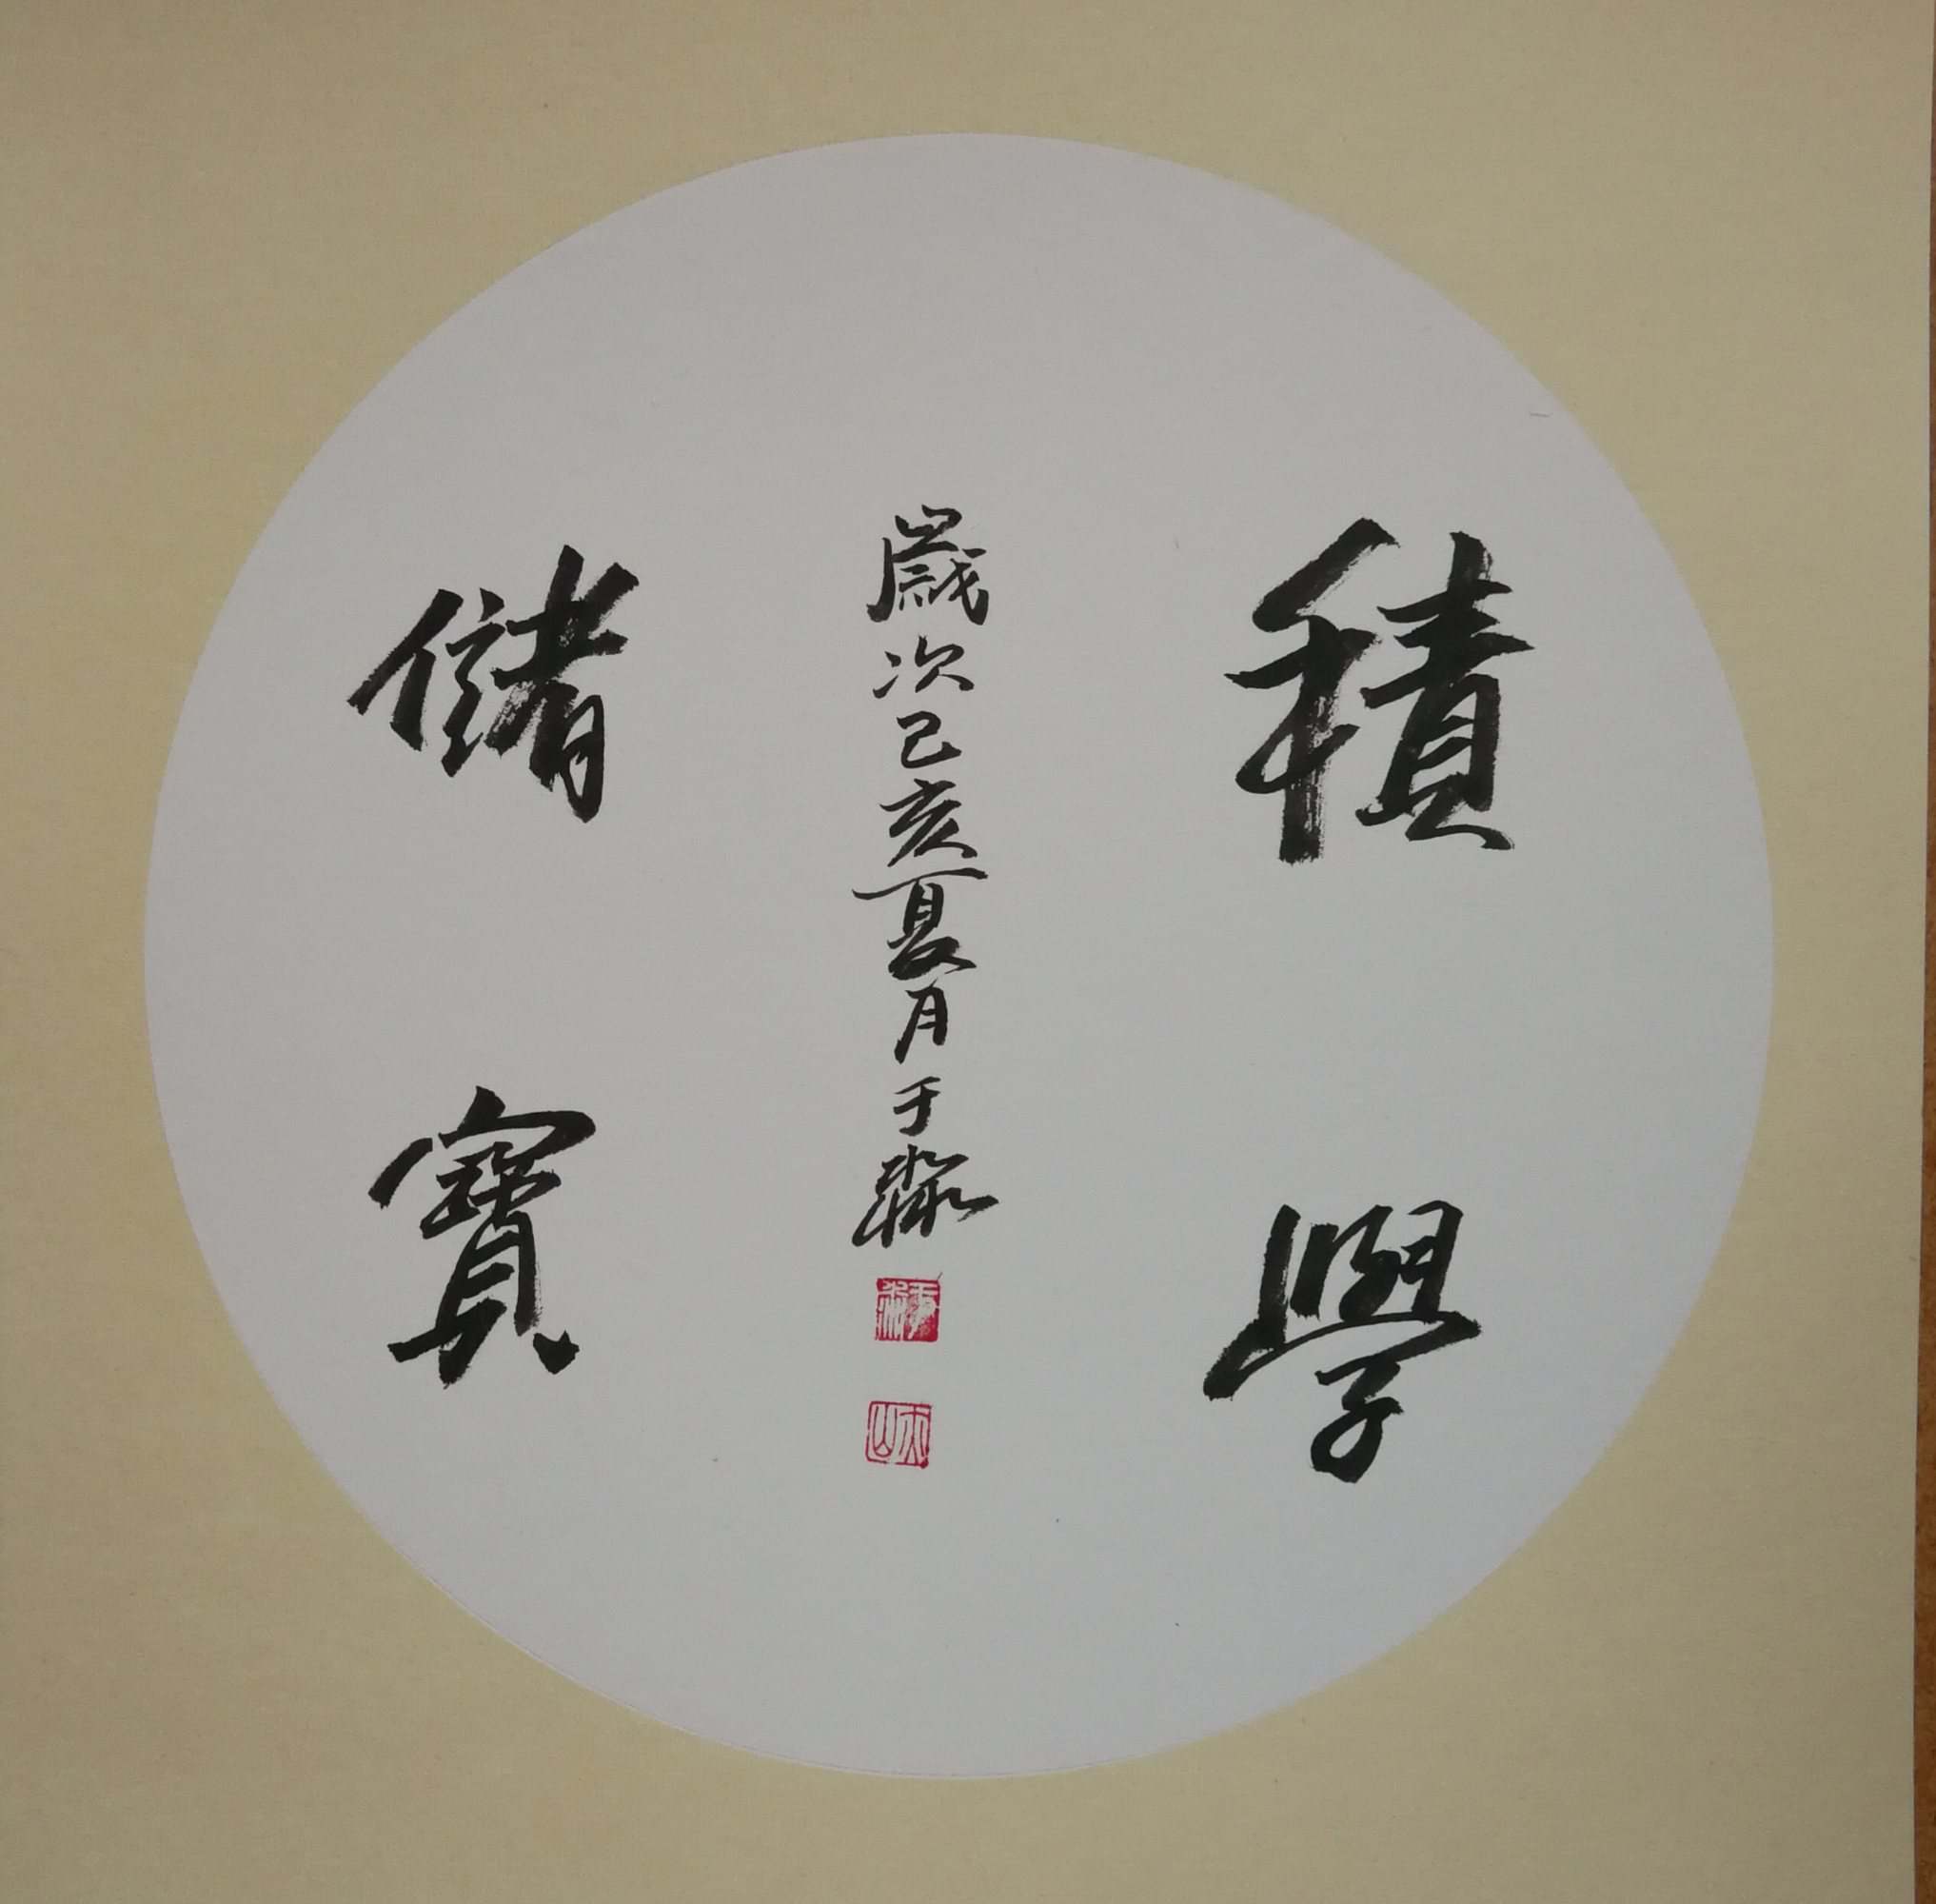 積學
歲次己亥夏月于淼
儲寶